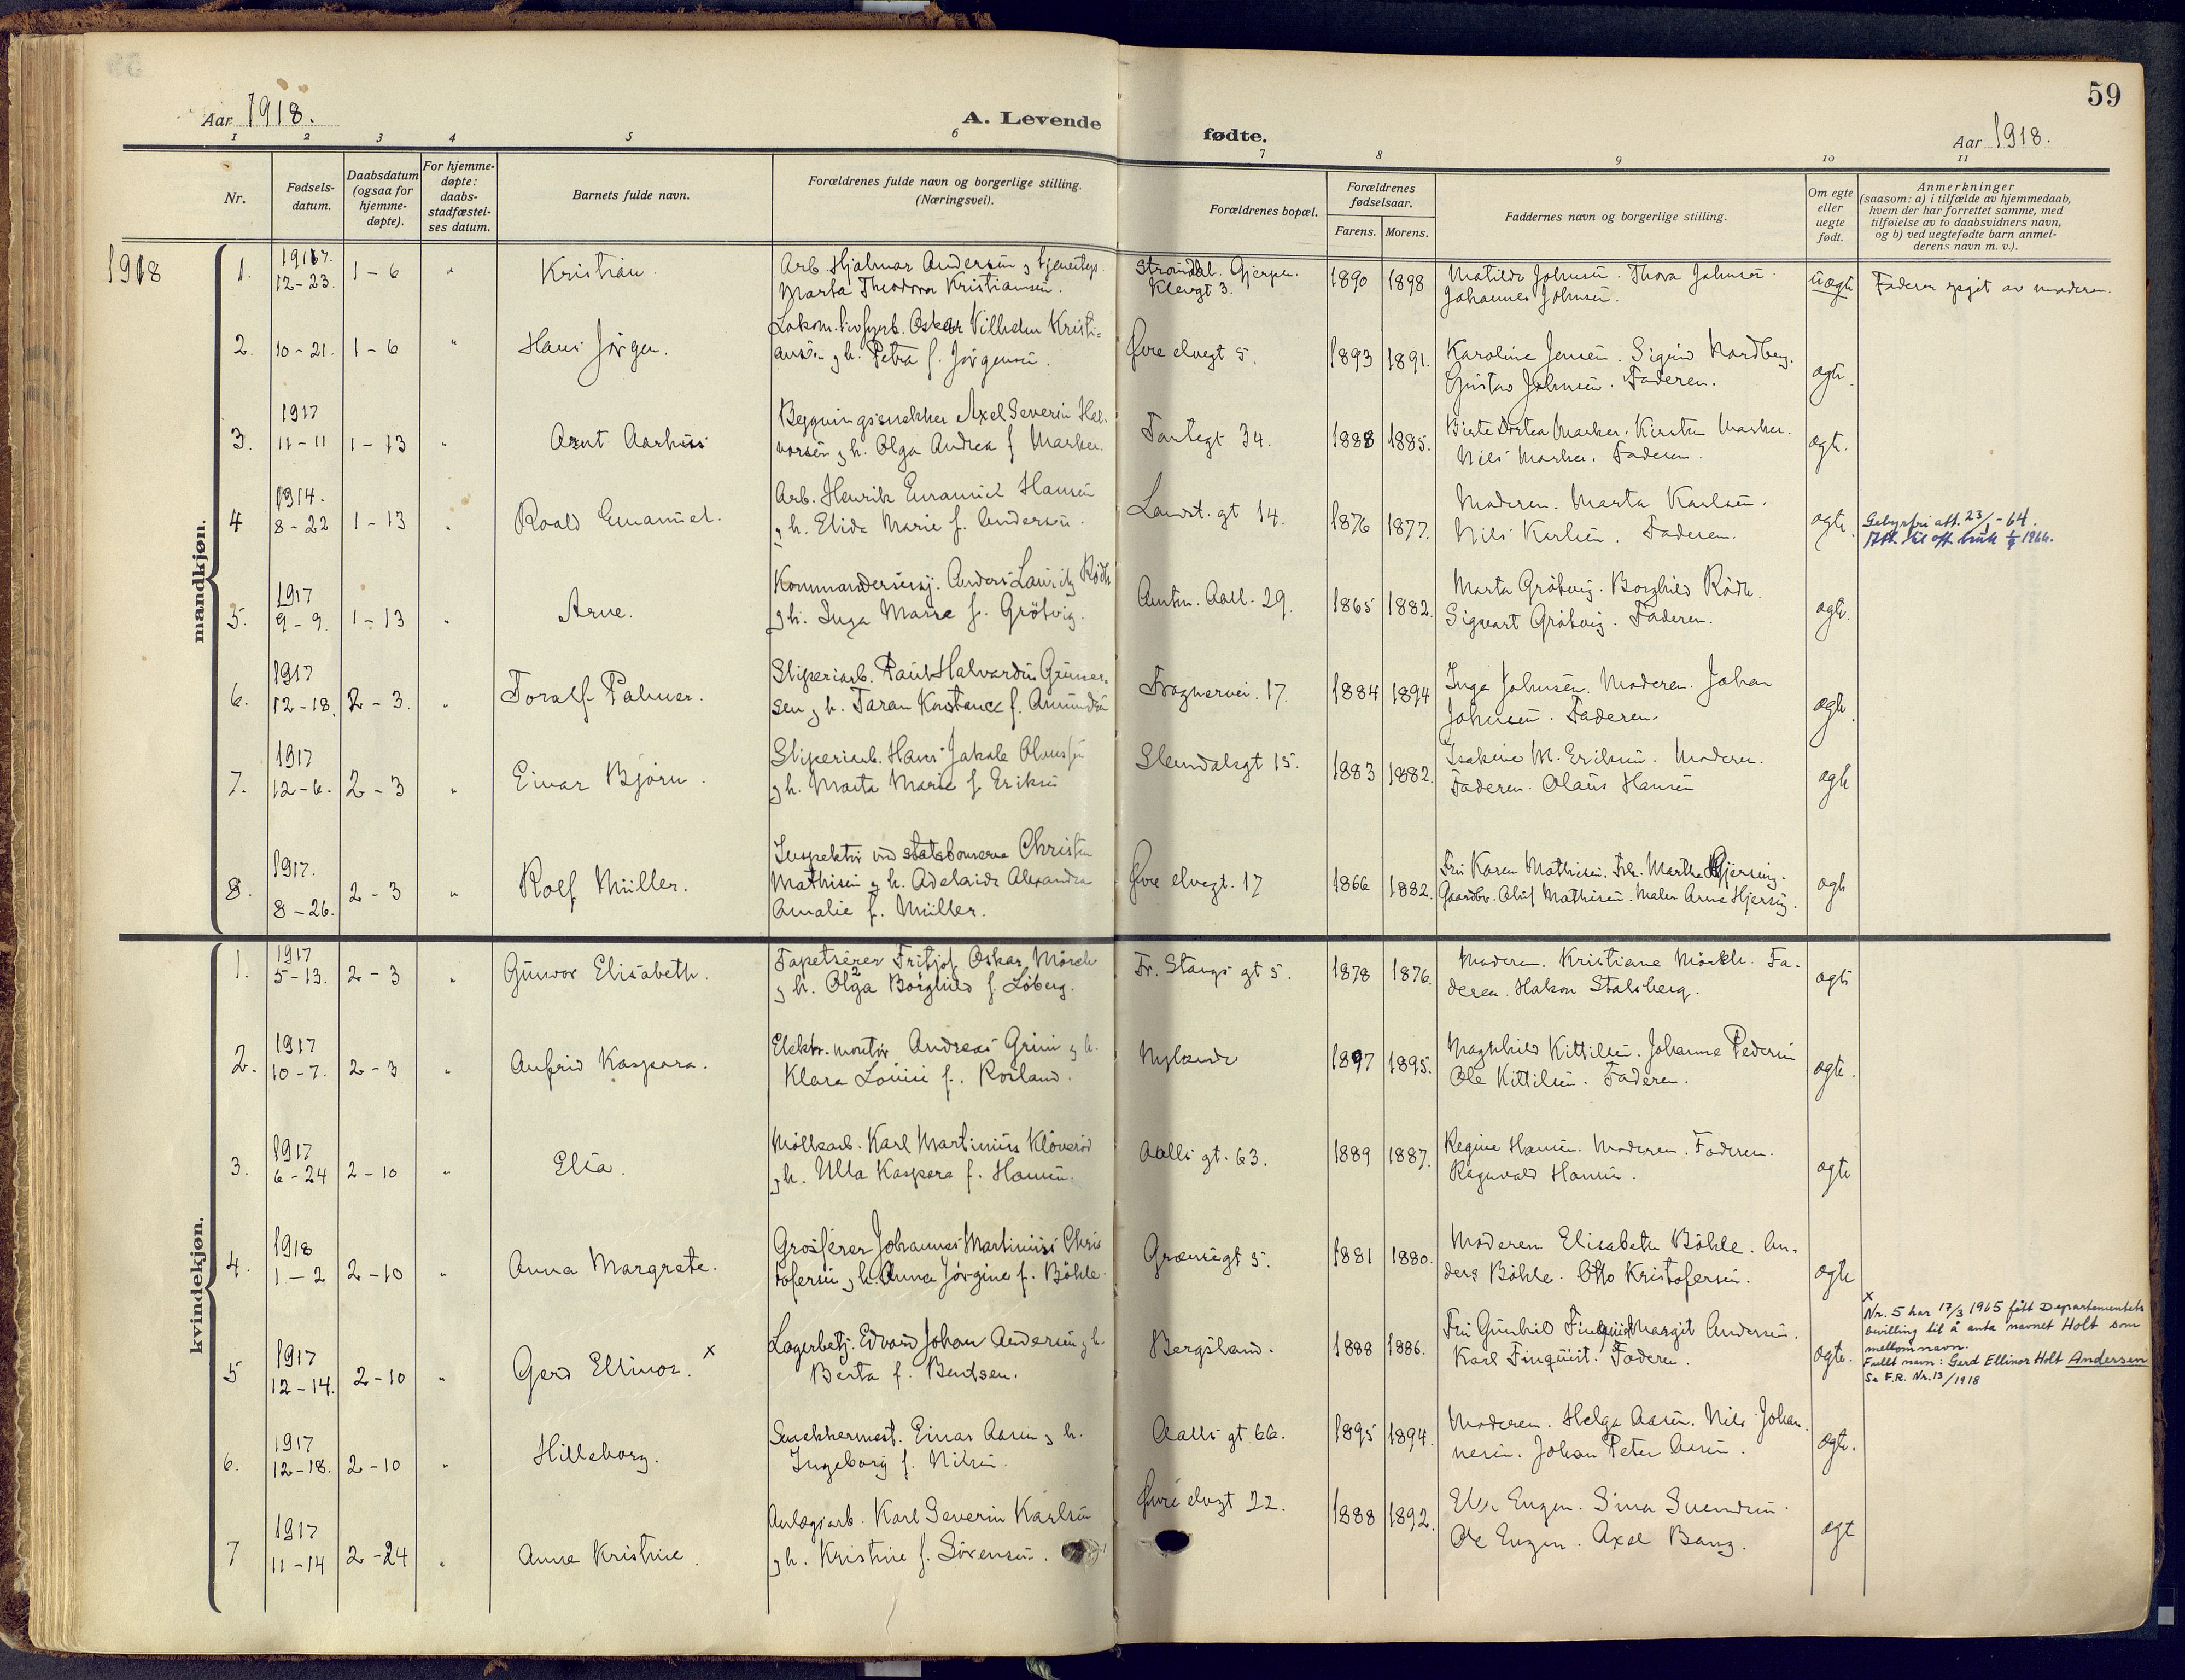 59
Aar 1918.
A. Levende
fødte.
Aar 1918.
1 2 3 4 5 6 7 8 9 10 11
Nr.
Fødsels-
datum.
Daabsdatum
(ogsaa for
hjemme-
døpte).
For hjemme-
døpte:
daabs-
stadfæstel-
ses datum.
Barnets fulde navn.
Forældrenes fulde navn og borgerlige stilling.
(Næringsvei).
Forældrenes bopæl.
Forældrenes
fødselsaar.
Farens. Morens.
Faddernes navn og borgerlige stilling.
Om egte
eller
uegte
født.
Anmerkninger
(saasom: a) i tilfælde av hjemmedaab,
hvem der har forrettet samme, med
tilføielse av to daabsvidners navn,
og b) ved uegtefødte barn anmel-
derens navn m. v.).
1918
mandkjøn.
1. 1917. 12-23. 1-6 " Kristian.
Arb. Hjalmar Andersen og tjenestep.
Marta Theodora Kristiansen.
Stromdal. Gjerpen.
Klevgt 3.
1890 1898
Matilde Johnsen. Thora Johnsen.
Johannes Johnsen.
uægte
Faderen opgit av moderen.
2. 10-21. 1-6 " Hans Jørgen.
Lokom. Oskar Vilhelm Kristi-
ansen og h. Petra f. Jørgensen.
Øvre elvegt 5.
1893 1891.
Karoline Jensen. Sigrid Nordberg.
Gustav Johnsen. Faderen.
ægte.
3. 1917 11-11 1-13 " Arnt Aarhus
Bygningssnekker Axel Severin Hal-
vorsen og h. Olga Andrea f. Marker.
Torvegt 34.
1888 1885.
Birte Dortea Marker. Kirsten Marker.
Nils Marker. Faderen.
ægte.
4 1914. 8-22 1-13 " Roald Emanuel.
Arb. Henrik Emanuel Hansen
og h. Elida Marie f. Andersen.
Landst. gt 14.
1876 1877.
Moderen. Marta Karlsen.
Nils Karlsen. Faderen.
ægte.
Gebyrfri att. 23/1-64.
Att. til off. bruk 1/9 1966.
5. 1917 9-9. 1-13 " Arne.
Anders Lauritz Rödh
og h. Inga Marie f. Grötvig.
Amtm. Aall. 29.
1865 1882.
Marta Grötvig. Borghild Rödh.
Sigvart Grötvig. Faderen.
ægte.
6. 1917 12-18. 2-3. " Toralf Palmer.
Sliperiarb. Paul Halvardus Gunner-
sen og h. Taran Konstance f. Amundsen
Frognervei. 17.
1884 1894
Inga Johnsen. Moderen. Johan
Johnsen. Faderen.
ægte.
7. 1917 12-6. 2-3 " Einar Bjørn.
Sliperiarb. Hans Jakob Olaussen
og h. Marta Marie f. Eriksen
Slemdalsgt 15.
1883 1882.
Isakine M. Eriksen. Moderen.
Faderen. Olaus Hansen
ægte
8. 1917. 8-26. 2-3 " Rolf Müller.
Inspektør ved statsbanerne Christen
Mathisen og h. Adelaide Alexandra
Amalie f. Müller.
Øvre elvegt. 17
1866 1882.
Fru Karen Mathisen. Frk. Martha Hjersing.
Gaardbr. Oluf Mathisen. Maler Arne Hjersing.
ægte
kvindekjøn.
1. 1917 5-13. 2-3 " Gunvor Elisabeth.
Tapetserer Fritjof Oskar Mörch
og h. Olga Borghild f. Löberg.
Fr. Stangs gt 5.
1878 1876.
Moderen. Kristiane Mörch. Fa-
deren. Hakon Stalsberg.
ægte
2. 1917 10-7. 2-3 " Anfrid Kaspara.
Elektr. montør Andreas Grini og h.
Klara Louise f. Rosland.
Nylende
1897 1895.
Magnhild Kittilsen. Johanna Pedersen
Ole Kittilsen. Faderen.
ægte.
3. 1917 6-24 2-10 " Elsa.
Møllearb. Karl Martinius Kløverød
og h. Ulla Kaspara f. Hansen.
Aalls gt. 63.
1889 1887.
Regine Hansen. Moderen. Faderen.
Ragnvald Hansen.
ægte
4. 1918 1-2 2-10 " Anna Margrete.
Grosserer Johannes Martinius Chris
tofersen og h. Anna Jørgine f. Böhle.
Grænsegt 5.
1881 1880.
Moderen Elisabeth Böhle. An-
ders Böhle. Otto Kristofersen.
ægte
5 1917 12-14. 2-10 " Gerd Ellinor. x
Lagerbetj. Edvard Johan Andersen og h.
Berta f. Bentsen.
Bergsland.
1888 1886.
Fru Gunhild Finquist Margit Andersen.
Karl Finquist. Faderen.
ægte.
x
Nr. 5 har 17/3 1965 fått Departementets
bevilling til å anta navnet Holt som
mellomnavn.
Fullt navn: Gerd Ellinor Holt Andersen
Se F.R. Nr. 13/1918
6. 1917 12-18. 2-10 " Hilleborg.
Snekkermest. Einar Aasen og h.
Ingeborg f. Nilsen.
Aalls gt 66.
1895 1894.
Moderen. Helga Aasen. Nils Johan-
nesen. Johan Peter Aasen.
ægte.
7 1917 11-14 2-24 " Anna Kristine.
Anlægsarb. Karl Severin Karlsen
og h. Kristine f. Sörensen.
Øvre elvegt 22.
1888 1892.
Else Engen. Sina Svendsen.
Ole Engen. Axel Bang.
ægt